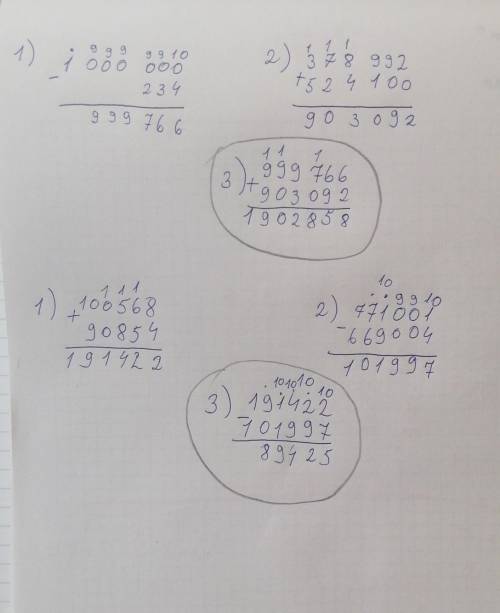 1) 9 9 9 9 9 10
1 000 000
- 234
999 766
2) 1 1 1
378 992
+ 524 100
903 092
3) 1 1 1
999 766
+ 903 092
1902858
1) 1 1 1
+ 100568
90854
191422
2) 10 9 9 10
771001
- 669004
101997
3) 10 10 10 10
191422
- 101997
89425